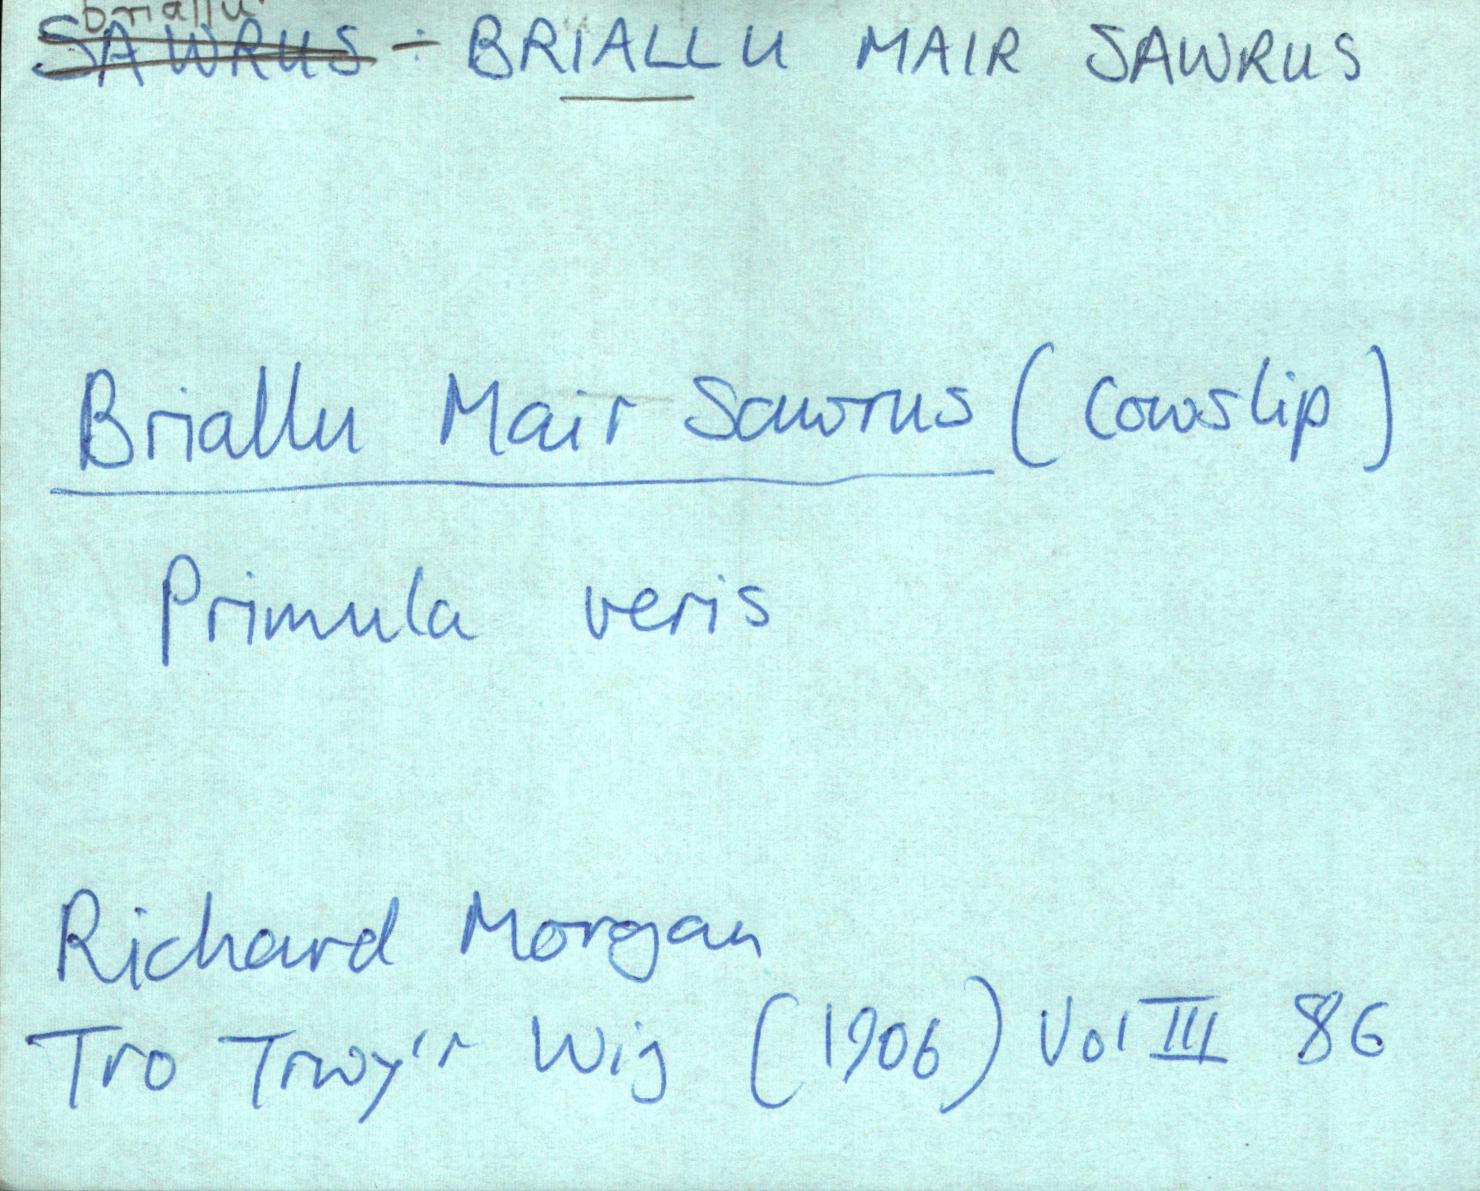 briallu
SAWRUS - BRIALLU MAIR SAWRUS
Briallu Mair Sawrus (Cowslip)
Primula veris
Richard Morgan
Tro Trwy'r Wig (1906) Vol III 86